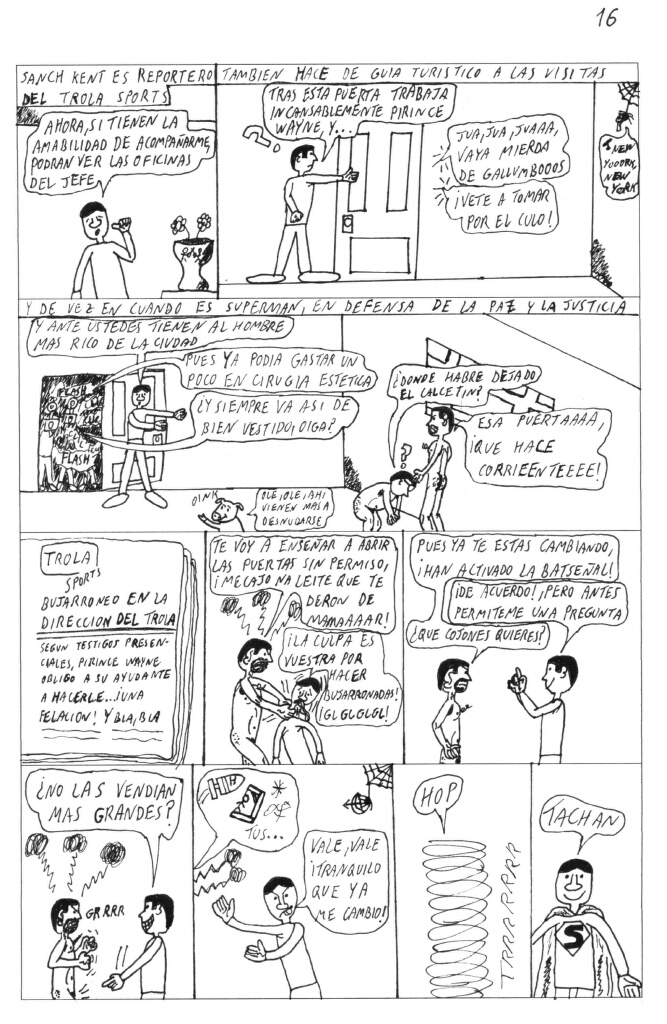 16
SANCH KENT ES REPORTERO
DEL TROLA SPORTS
AHORA, SI TIENEN LA
AMABILIDAD DE ACOMPAÑARME,
PODRAN VER LAS OFICINAS
DEL JEFE
TAMBIEN HACE DE GUIA TURISTICO A LAS VISITAS
TRAS ESTA PUERTA TRABAJA
INCANSABLEMENTE PIRINCE
WAYNE, Y...
JUA, JUA, JUAAA,
VAYA MIERDA
DE GALLUMBOOOS
¡VETE A TOMAR
POR EL CULO!
NEW
YOOORK,
NEW
YORK
Y DE VEZ EN CUANDO ES SUPERMAN, EN DEFENSA DE LA PAZ Y LA JUSTICIA
¡Y ANTE USTEDES TIENEN AL HOMBRE
MAS RICO DE LA CIUDAD
PUES YA PODIA GASTAR UN
POCO EN CIRUGIA ESTETICA
¿Y SIEMPRE VA ASI DE
BIEN VESTIDO, OIGA?
FLASH
FLASH
OINK
OLE, OLE, AHI
VIENEN MAS A
DESNUDARSE
¿DONDE HABRE DEJADO
EL CALCETIN?
ESA PUERTAAAA,
¡QUE HACE
CORRIEENTEEEE!
?
TROLA
SPORTS
BUJARRONEO EN LA
DIRECCION DEL TROLA
SEGUN TESTIGOS PRESEN-
CIALES, PIRINCE WAYNE
OBLIGO A SU AYUDANTE
A HACERLE...¡UNA
FELACION! Y BLA, BLA
TE VOY A ENSEÑAR A ABRIR
LAS PUERTAS SIN PERMISO,
¡MECAJO NA LEITE QUE TE
DERON DE
MAMAAAAR!
¡LA CULPA ES
VUESTRA POR
HACER
BUJARRONADAS!
¡GLGLGLGL!
PUES YA TE ESTAS CAMBIANDO,
¡HAN ACTIVADO LA BATSEÑAL!
¡DE ACUERDO!, ¡PERO ANTES
PERMITEME UNA PREGUNTA
¿QUE COJONES QUIERES?
¿NO LAS VENDIAN
MAS GRANDES?
GRRRR
TUS...
VALE, VALE
¡TRANQUILO
QUE YA
ME CAMBIO!
HOP
TRRRRRRRR
TACHAN
S